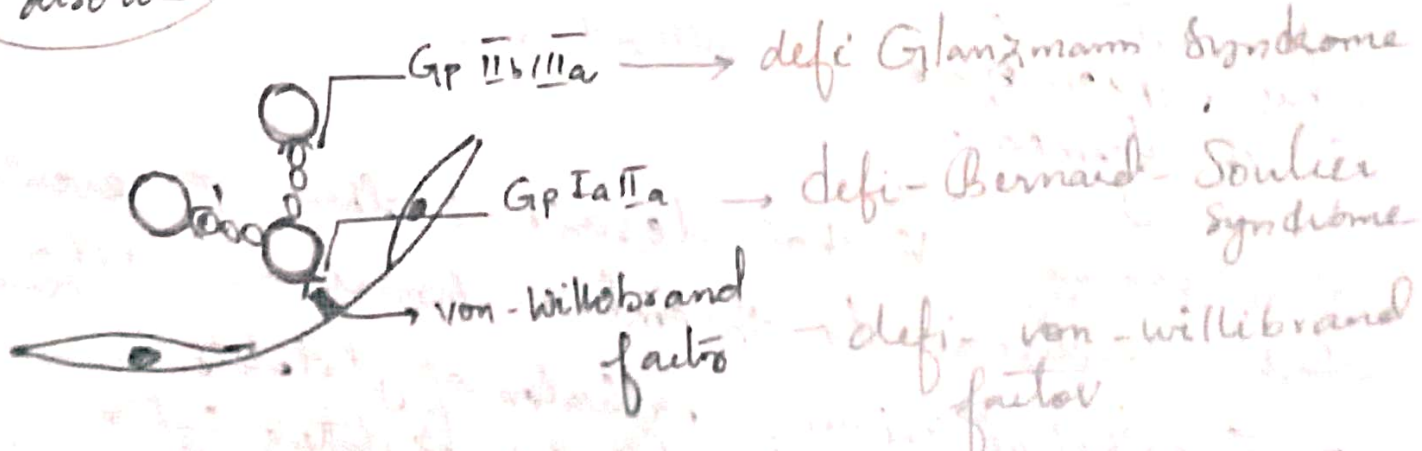 Gp IIb/IIIa → defi Glanzmann Syndrome
Gp Ia IIa → defi - Bernard - Soulier
syndrome
von - Willobrand
factor
- defi - von - willibrand
factor